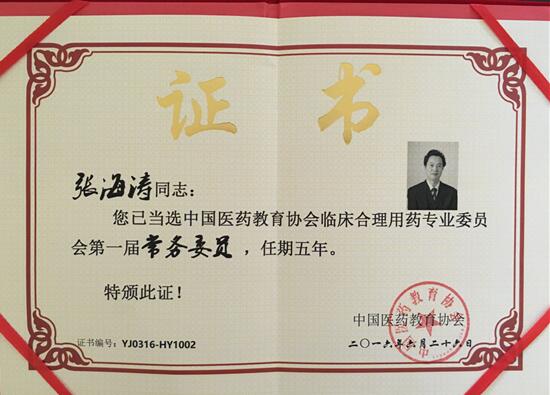 证书
张海涛同志：
您已当选中国医药教育协会临床合理用药专业委员
会第一届常务委员，任期五年。
特颁此证！
中国医药教育协会
中国医药教育协会
证书编号：YJ0316-HY1002
二〇一六年六月二十六日